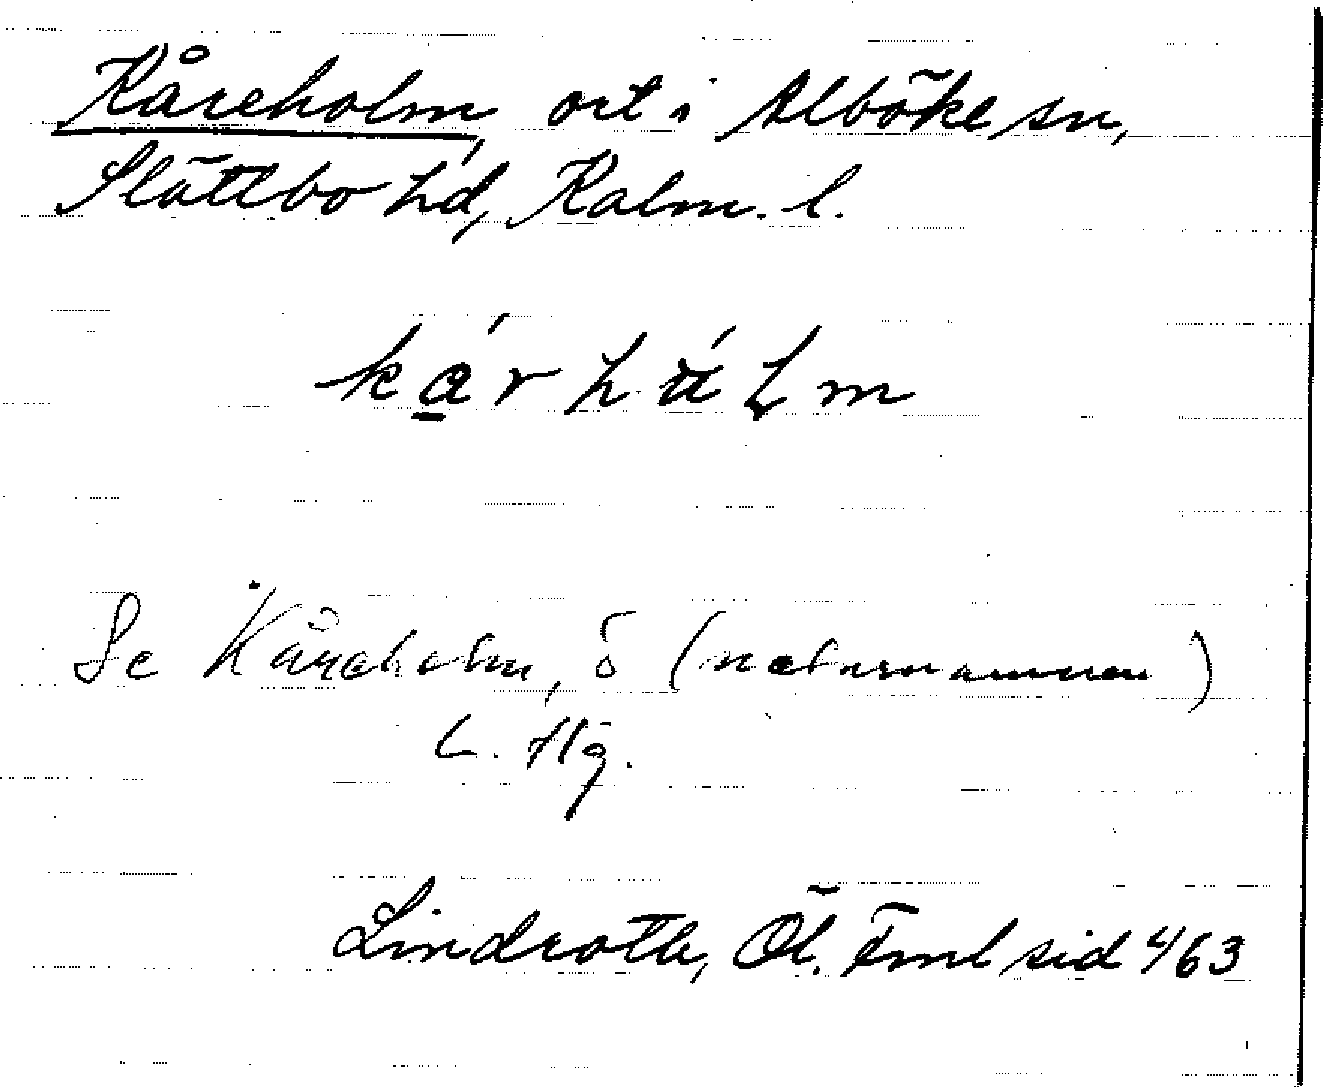 Kåreholm, ort i Alböke sn,
Slättbo hd, Kalm. l.
Se Kåreholm, ö (naturnamnen)
L. Hg.
Lindroth, Öl. Fml sid 463